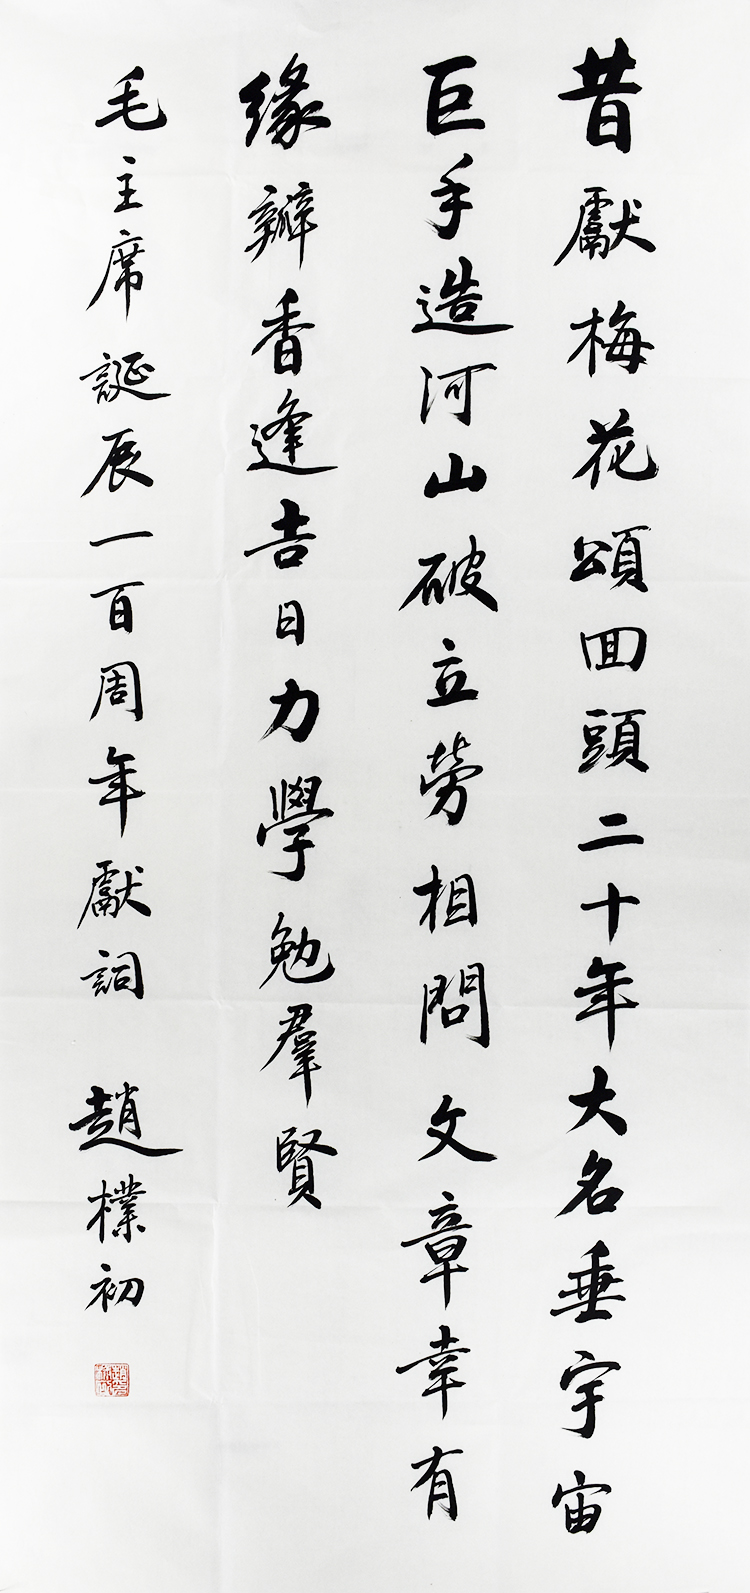 昔獻梅花頌回頭二十年大名垂宇宙
巨手造河山破立勞相問文章幸有
緣瓣香逢吉日力學勉羣賢
毛主席誕辰一百周年獻詞 趙樸初